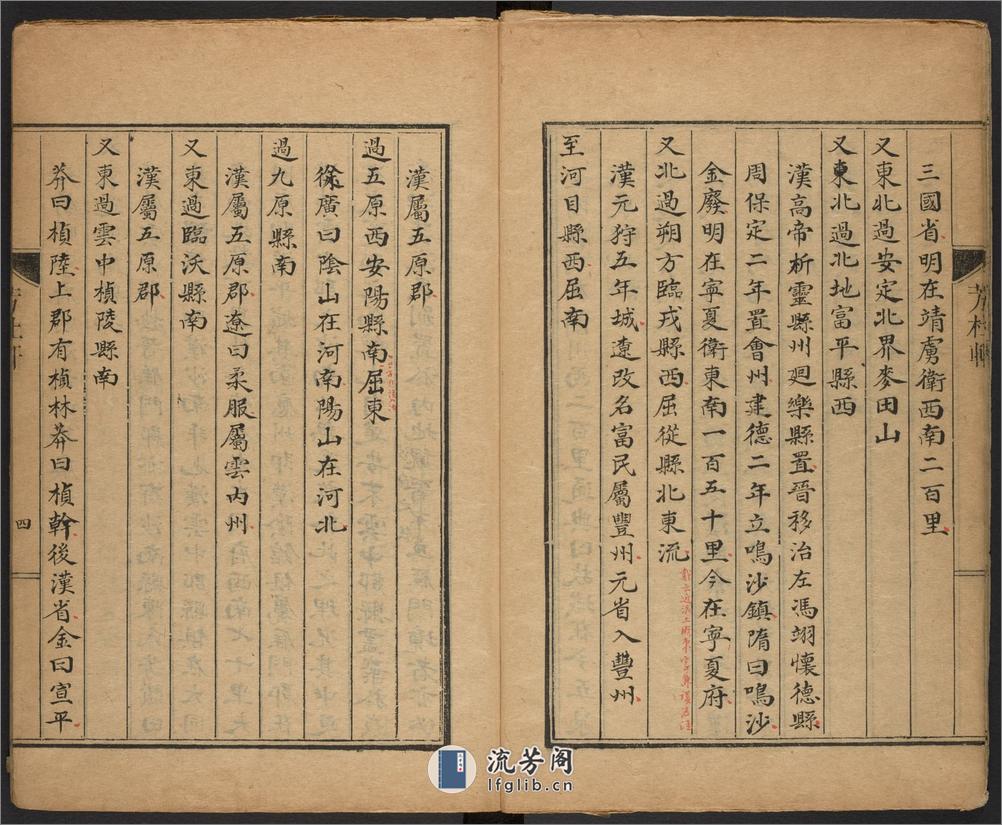 三國省明在靖虜衛西南二百里
又東北過安定北界麥田山
又東北過北地富平縣西
漢高帝析靈縣州廻樂縣置晉移治左馮翊懷德縣
周保定二年置會州建德二年立鳴沙鎮隋曰鳴沙
金廢明在寧夏衛東南一百五十里今在寧夏府
又北過朔方臨戎縣西屈從縣北東流
漢元狩五年城遼改名富民屬豐州元省入豐州
至河目縣西屈南
漢屬五原郡
過五原西安陽縣南屈東
徐廣曰陰山在河南陽山在河北
過九原縣南
漢屬五原郡遼曰柔服屬雲內州
又東過臨沃縣南
漢屬五原郡
又東過雲中楨陵縣南
莽曰楨陸上郡有楨林莽曰楨幹後漢省金曰宣平
四
流芳阁
lfglib.cn